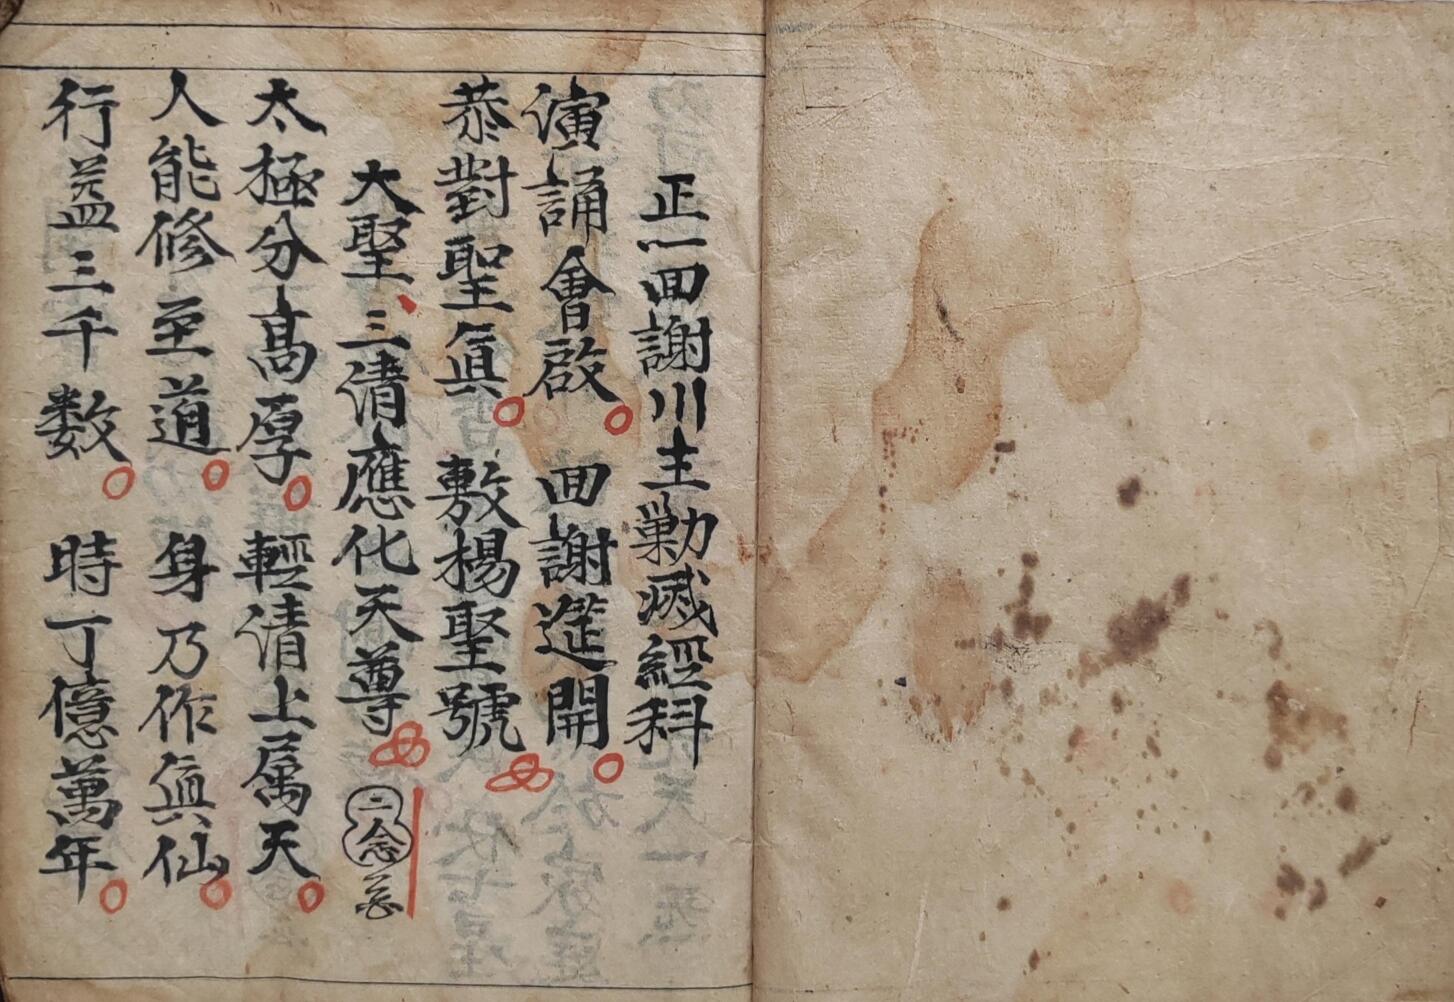 正一回謝川主勦滅經科
演誦會啟 回謝筵開
恭對聖眞 敷楊聖號
大聖三清應化天尊 二念
太極分高厚 輕清上属天
人能修至道 身乃作眞仙
行益三千数 時丁億萬年